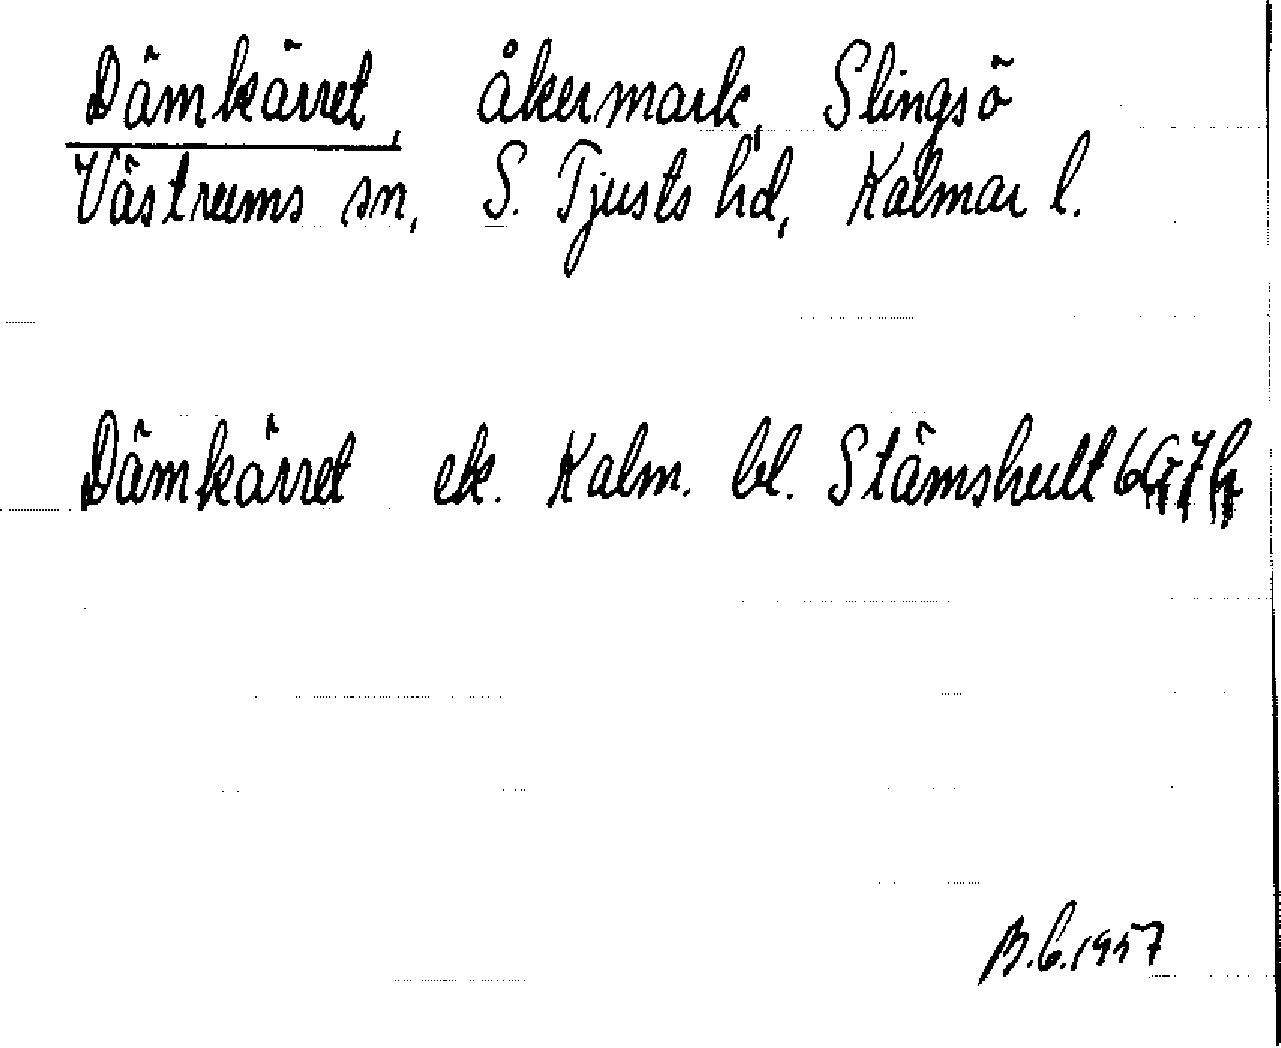 Dämkärret, åkermark, Slingsö
Västrums sn, S. Tjusts hd, Kalmar l.
Dämkärret ek. Kalm. bl. Stämshult 6G7h
B.C.1957